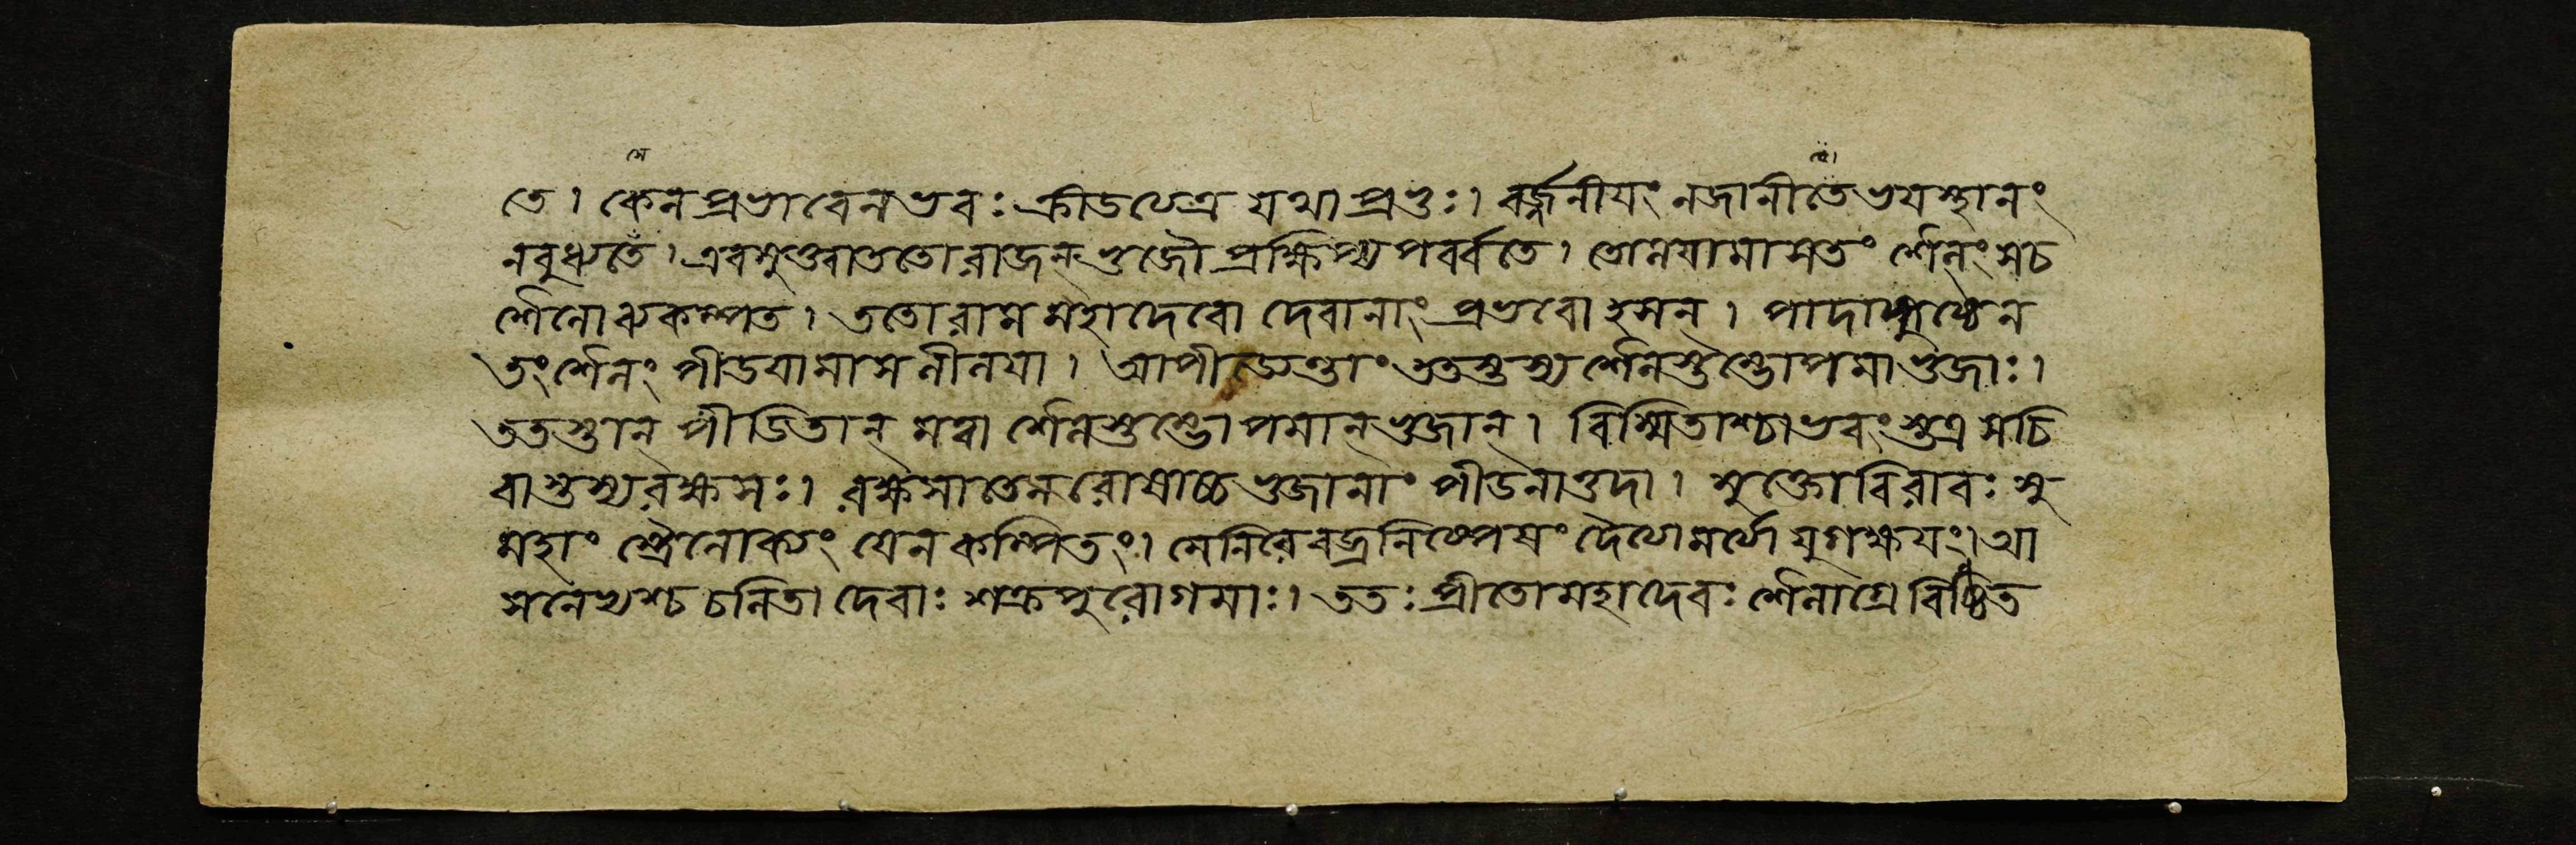 তে। কেন প্রভাবেন ভবঃ ক্রীডতেত্র যথা প্রভুঃ। বর্জ্জনীযং নজানীতে ভযস্থানং
নবুধ্যতে। এবমুক্ত্বা ততো রাজন্ ভুজৌ প্রক্ষিপ্য পর্ব্বতে। তোলযামাস তং শৈলং সচ
শৈলো ব্যকম্পত। ততো রাম মহাদেবো দেবানাং প্রভবো হসন্। পাদাঙ্গুষ্ঠেন
তং শৈলং পীডযামাস লীলযা। ততস্তস্য শৈলস্তম্ভোপমা ভুজাঃ।
ততস্তান্ পীডিতান্ মত্বা শৈলস্তম্ভোপমান্ ভুজান্। বিস্মিতাশ্চাভবংস্তত্র সচি
বাস্তস্য রক্ষসঃ। রক্ষসা তেন রোষাচ্চ ভুজানাং পীডনাত্তদা। মুক্তো বিরাবঃ সু
মহাং স্ত্রৈলোক্যং যেন কম্পিতং। মেনিরে বজ্রনিষ্পেষং যুগক্ষযং। আ
সনেভ্যশ্চ চলিতা দেবাঃ শক্রপুরোগমাঃ। ততঃ প্রীতো মহাদেবঃ শৈলাগ্রে বিষ্ঠিত